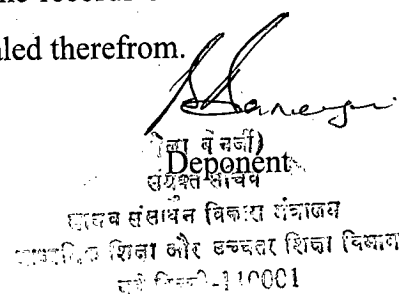 the record
aled therefrom.
बैनर्जी)
Deponent
संयुक्त सचिव
मानव संसाधन विकास मंत्रालय
माध्यमिक शिक्षा और उच्चतर शिक्षा विभाग
नई दिल्ली-110001